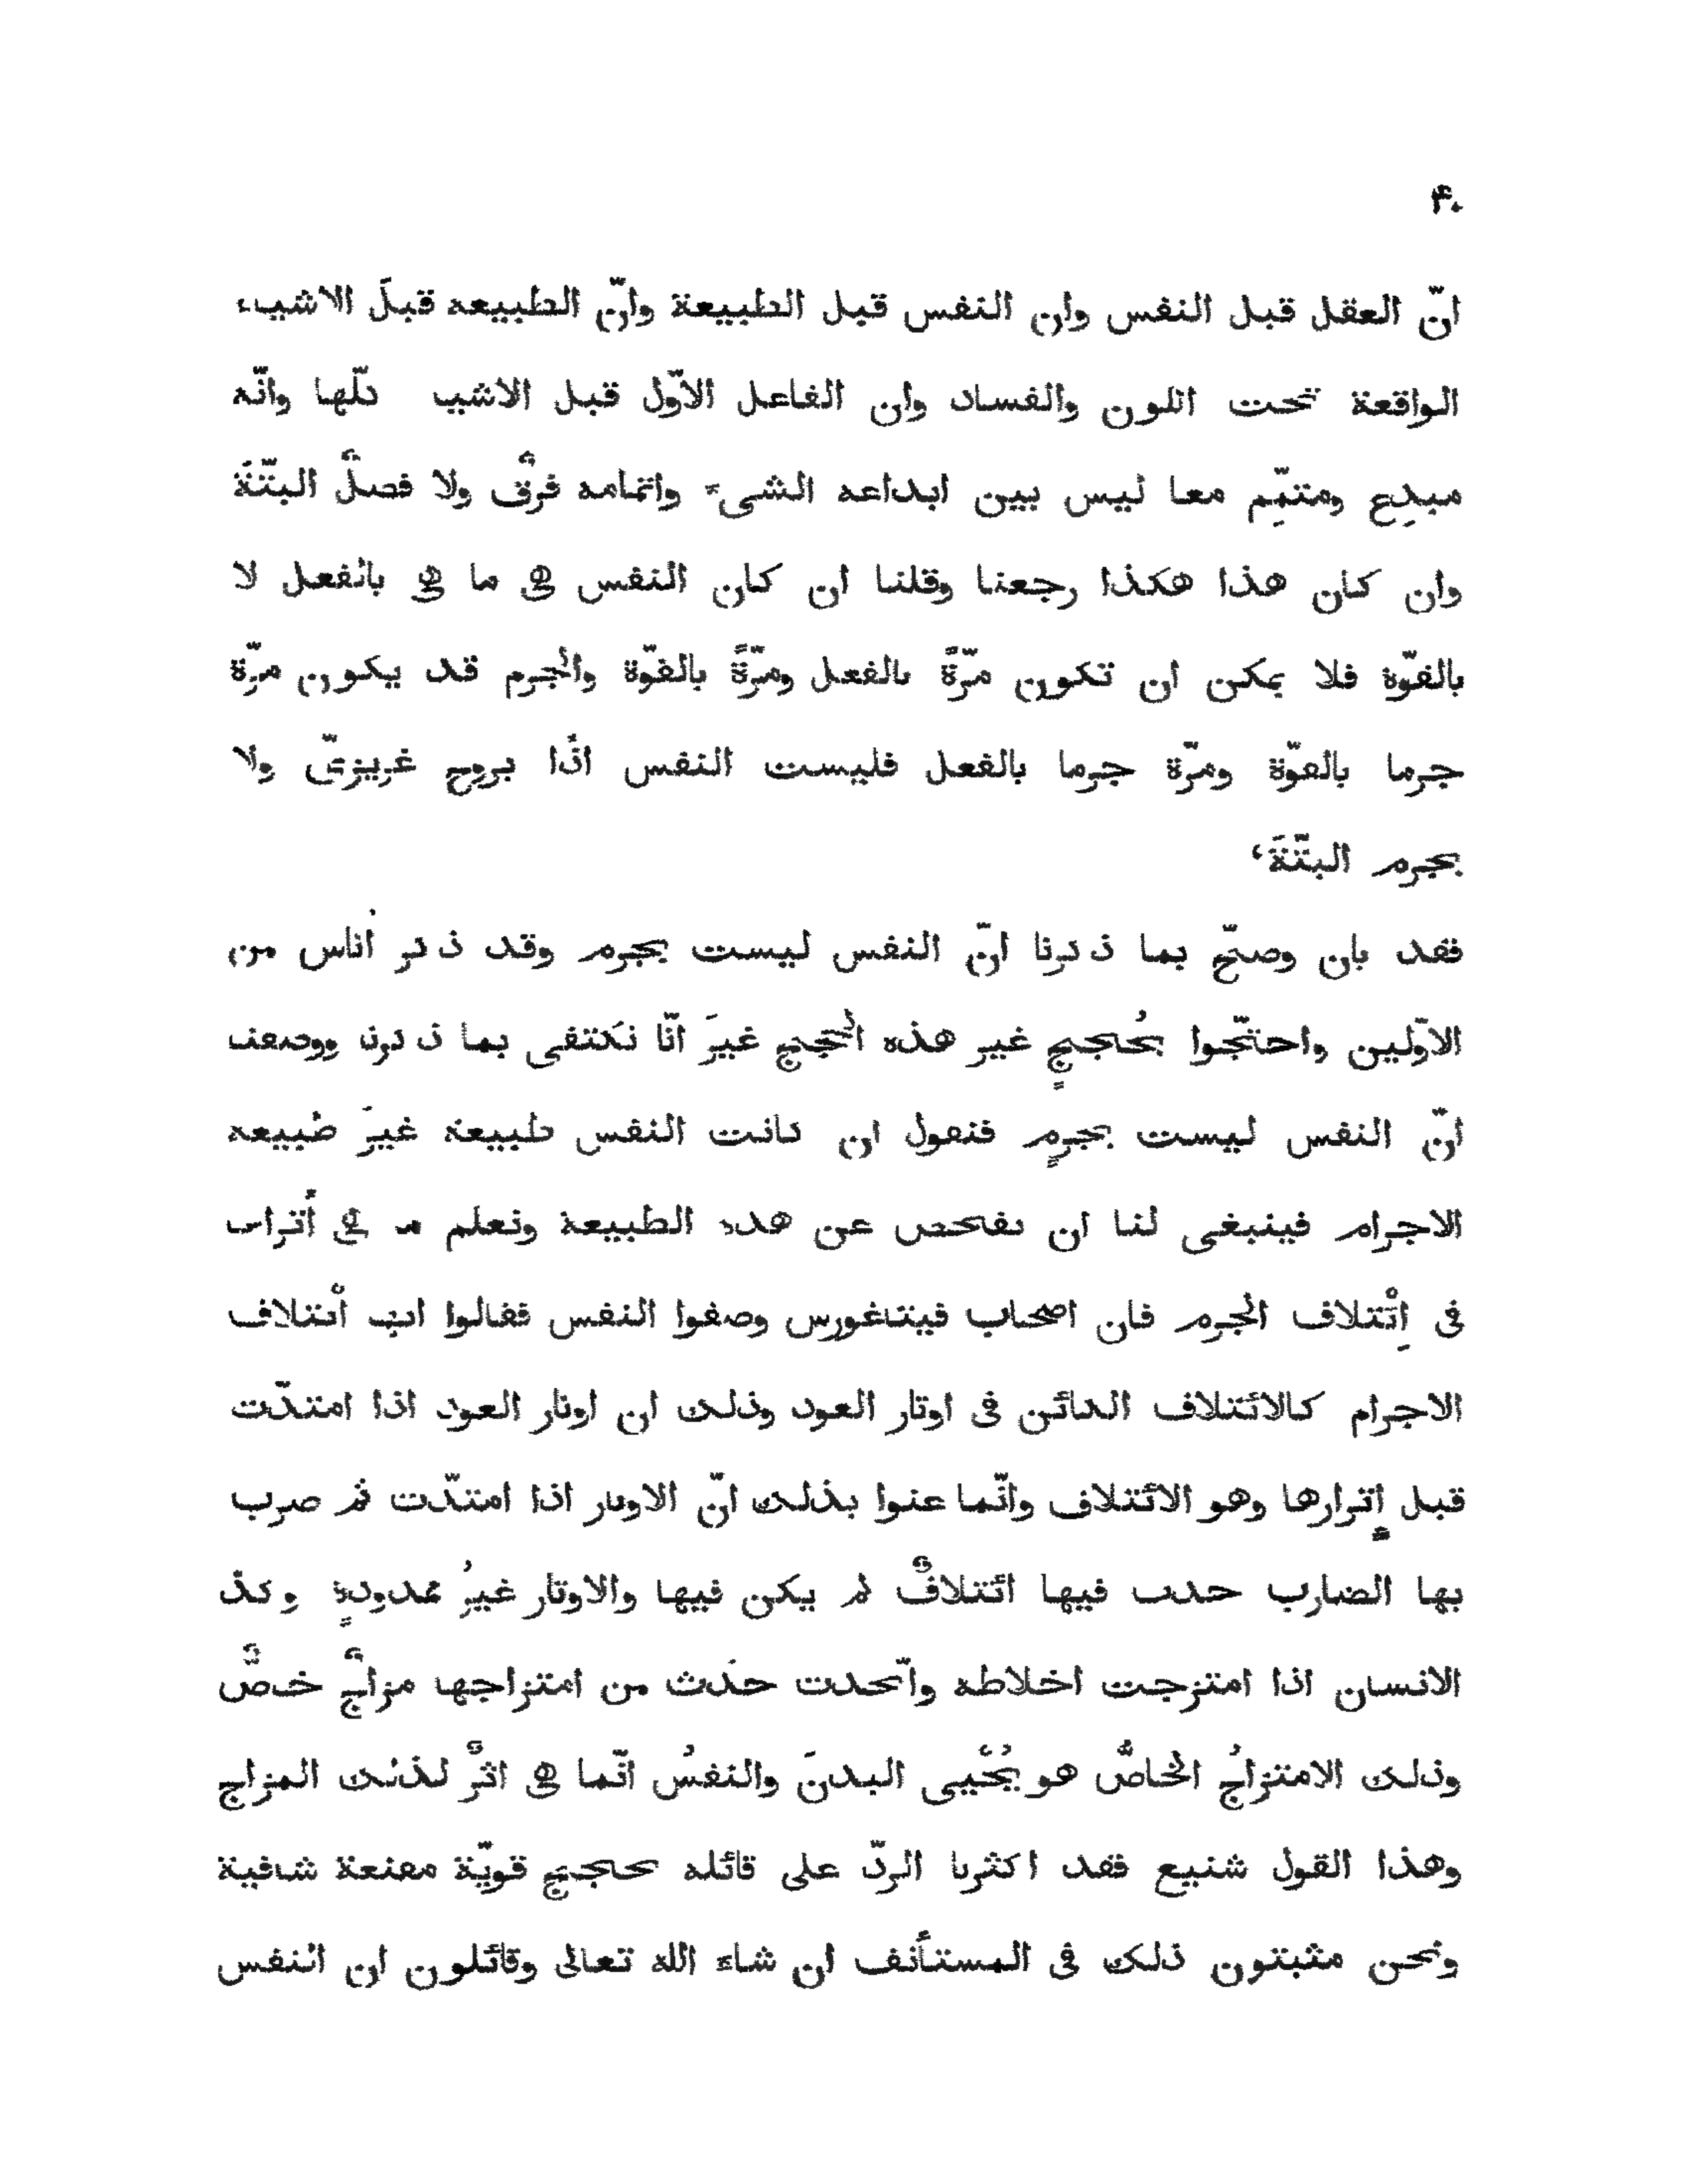 ۴۰
انّ العقل قبل النفس وان النفس قبل الطبيعة وانّ الطبيعه قبلَ الاشياء
الواقعة تحت الكون والفساد وان الفاعل الاوّل قبل الاشيا كلّها وانّه
مبدِع ومتمِّم معا ليس بين ابداعه الشىء واتمامه فرقٌ ولا فصلٌ البتّةَ
وان كان هذا هكذا رجعنا وقلنا ان كان النفس هى ما هى بالفعل لا
بالقوّة فلا يمكن ان تكون مرّةً بالفعل ومرّةً بالقوّة والجرم قد يكون مرّة
جرما بالقوّة ومرّة جرما بالفعل فليست النفس اذًا بروح غريزىّ ولا
بجرم البتّةَ،
فقد بان وصحّ بما ذكرنا انّ النفس ليست بجرم وقد ذكر أناس من
الاوّلين واحتجّوا بحُججٍ غير هذه الحُجج غيرَ انّا نكتفى بما ذكرنا ووصفنا
انّ النفس ليست بجرمٍ فنقول ان كانت النفس طبيعة غيرَ طبيعه
الاجرام فينبغى لنا ان نفحص عن هذه الطبيعة ونعلم ما هى أتراها
فى اِئْتلاف الجرم فان اصحاب فيتاغورس وصفوا النفس فقالوا انها أئتلاف
الاجرام كالائتلاف الكائن فى اوتار العود وذلك ان اوتار العود اذا امتدّت
قبل إترارها وهو الائتلاف وانّما عنوا بذلك انّ الاوتار اذا امتدّت ثم ضرب
بها الضارب حدث فيها ائتلافٌ لم يكن فيها والاوتار غيرُ ممدودةٍ وكذا
الانسان اذا امتزجت اخلاطه واتّحدت حدَث من امتزاجها مزاجٌ خاصٌّ
وذلك الامتزاجُ الخاصُّ هو يُحْيى البدنَ والنفسُ انّما هى اثرٌ لذلك المزاج
وهذا القول شنيع فقد اكثرنا الردّ على قائله بحجج قويّة مقنعة شافية
ونحن مثبتون ذلك فى المستأنف ان شاء الله تعالى وقائلون ان النفس